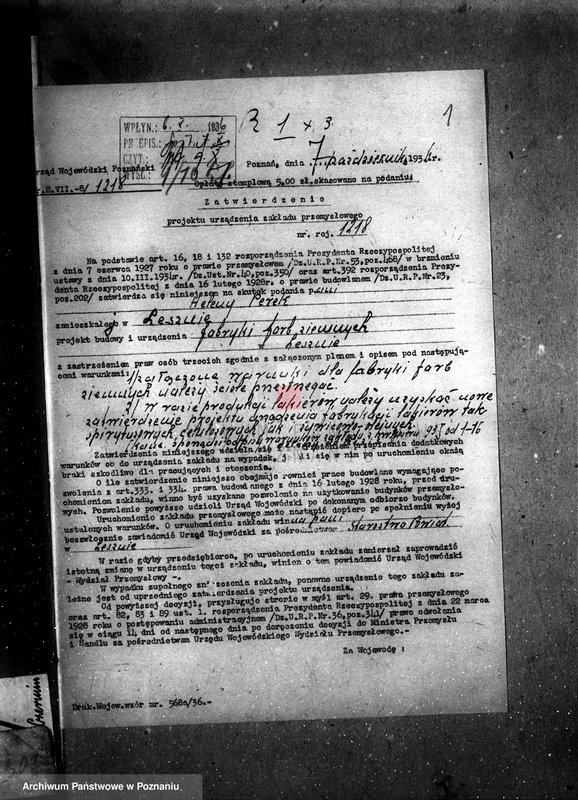 1
R 1 x 3
WPŁYN.: 6. X. 1936
PR EPIS.:
CZYT.:
WYSŁ.:
Urząd Wojewódzki Poznański
Nr.H.VII.-8/ 1218
Poznań, dnia 7 października 1936 r.
Opłatę stemplową 5,00 zł.skasowano na podaniu.
Zatwierdzenie
projektu urządzenia zakładu przemysłowego
nr. rej. 1218
Na podstawie art. 16, 18 i 132 rozporządzenia Prezydenta Rzeczypospolitej
z dnia 7 czerwca 1927 roku o prawie przemysłowem /Dz.U.R.P.Nr.53,poz.468/ w brzmieniu
ustawy z dnia 10.III.1934r. /Dz.Ust.Nr.40,poz.350/ oraz art.392 rozporządzenia Prezy-
denta Rzeczypospolitej z dnia 16 lutego 1928r. o prawie budowlanem /Dz.U.R.P.Nr.23,
poz.202/ zatwierdza się niniejszem na skutek podania pani
Heleny Perek
zamieszkałej w Lesznie
projekt budowy i urządzenia fabryki farb ziemnych
w Lesznie
z zastrzeżeniem praw osób trzecich zgodnie z załączonym planem i opisem pod następują-
cemi warunkami: 1/ załączone warunki dla fabryki farb
ziemnych należy ściśle przestrzegać.
2/ W razie produkcji lakierów należy uzyskać nowe
zatwierdzenie projektu urządzenia fabrykacji lakierów tak
spirytusowych, celulozowych jak i żywiczno-olejnych.
Zatwierdzenia niniejszego udziela się z zastrzeżeniem przepisania dodatkowych
warunków co do urządzenia zakładu na wypadek, jeśli się w nim po uruchomieniu okażą
braki szkodliwe dla pracujących i otoczenia.
O ile zatwierdzenie niniejsze obejmuje również prace budowlane wymagające po-
zwolenia z art.333. i 334. prawa budowlanego z dnia 16 lutego 1928 roku, przed uru-
chomieniem zakładu, winno być uzyskane pozwolenie na użytkowanie budynków przemysło-
wych. Pozwolenie powyższe udzieli Urząd Wojewódzki po dokonanym odbiorze budynków.
Uruchomienie zakładu przemysłowego może nastąpić dopiero po spełnieniu wyżej
ustalonych warunków. O uruchomieniu zakładu winna pani
bezzwłocznie zawiadomić Urząd Wojewódzki za pośrednictwem Starostwa Powiat.
w Lesznie
W razie gdyby przedsiębiorca, po uruchomieniu zakładu zamierzał zaprowadzić
istotną zmianę w urządzeniu tegoż zakładu, winien o tem powiadomić Urząd Wojewódzki
- Wydział Przemysłowy -.
W wypadku zupełnego zniszczenia zakładu, ponowne urządzenie tego zakładu za-
leżne jest od uprzedniego zatwierdzenia projektu urządzenia.
Od powyższej decyzji, przysługuje stronie w myśl art. 29. prawa przemysłowego
oraz art. 82, 83 i 89 ust. 1. rozporządzenia Prezydenta Rzeczypospolitej z dnia 22 marca
1928 roku o postępowaniu administracyjnem /Dz.U.R.P.Nr.36,poz.341/ prawo odwołania
się w ciągu 14 dni od następnego dnia po doręczeniu decyzji do Ministra Przemysłu
i Handlu za pośrednictwem Urzędu Wojewódzkiego Wydziału Przemysłowego.-
Za Wojewodę :
Druk.Wojew.wzór nr. 568a/36.-
Archiwum Państwowe w Poznaniu